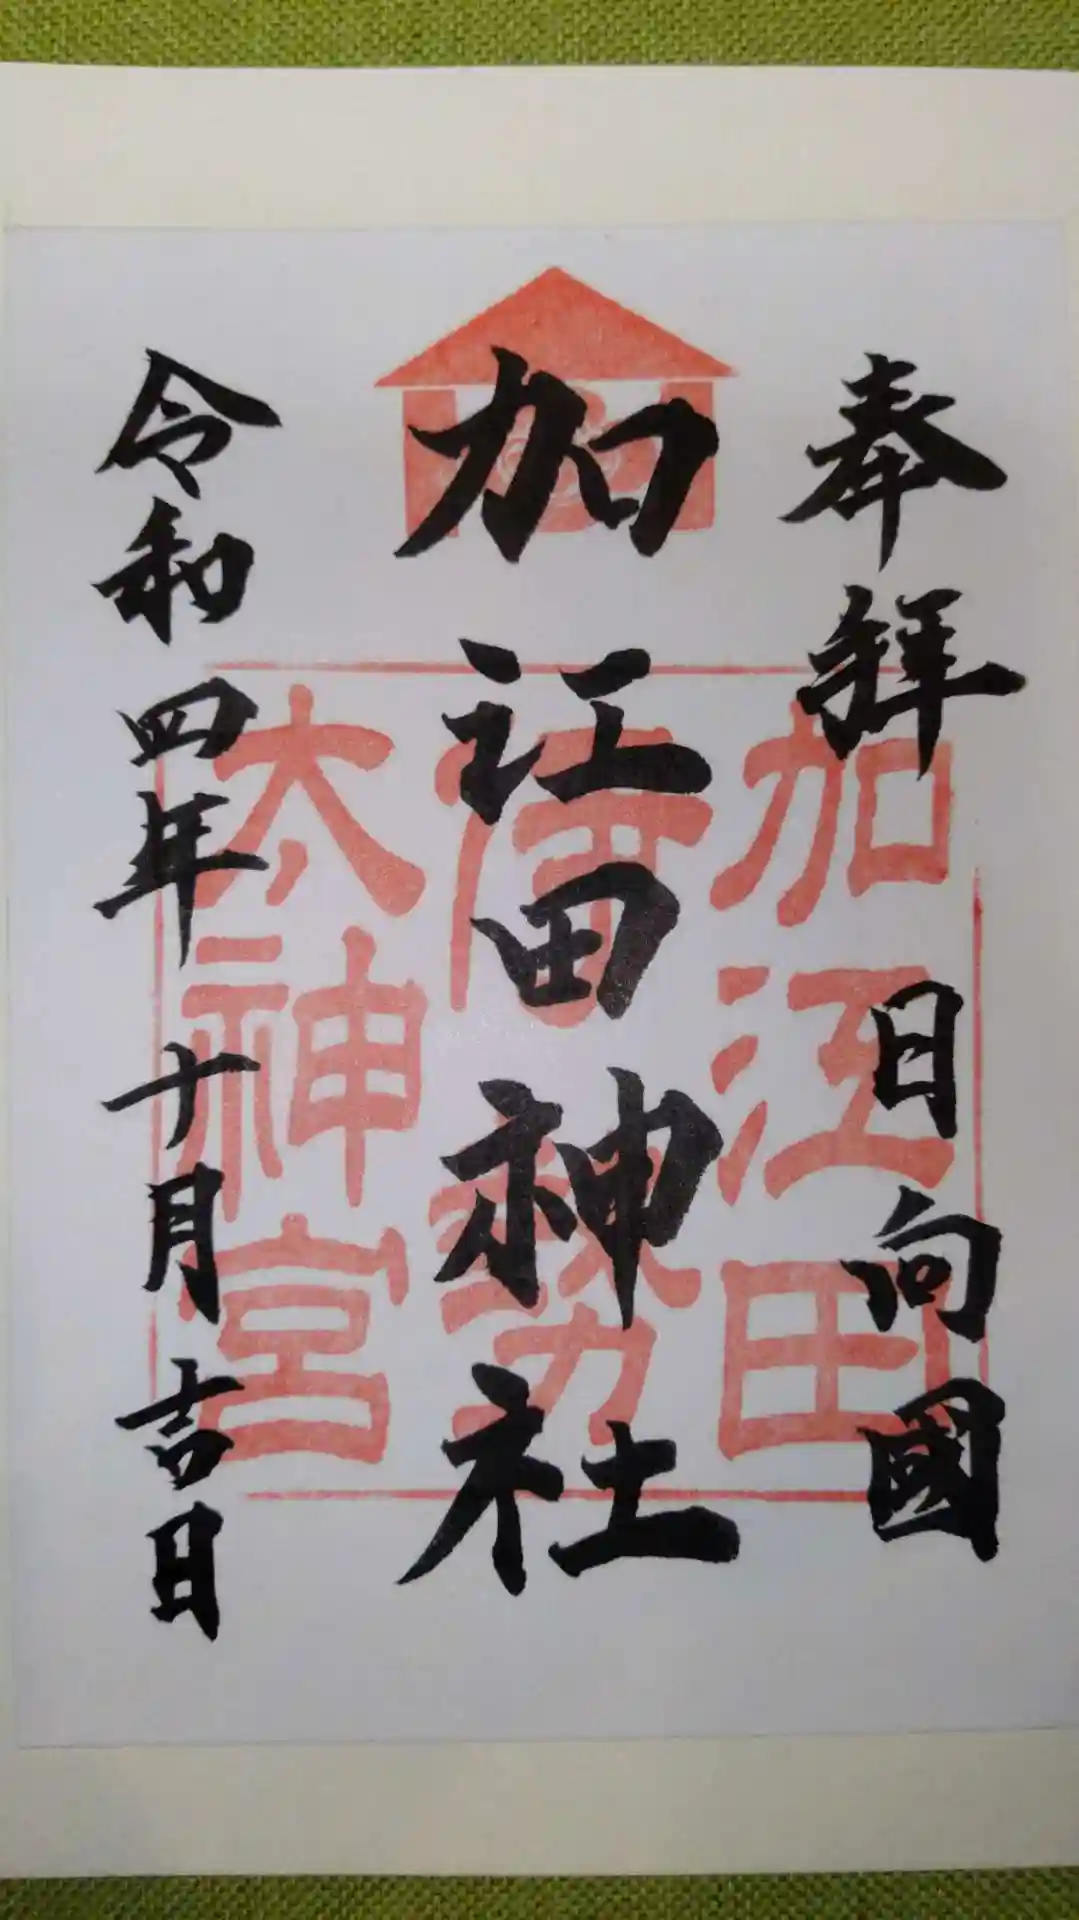 奉拝
日向國
加江田神社
令和四年十月吉日
加江田
伊勢
太神宮